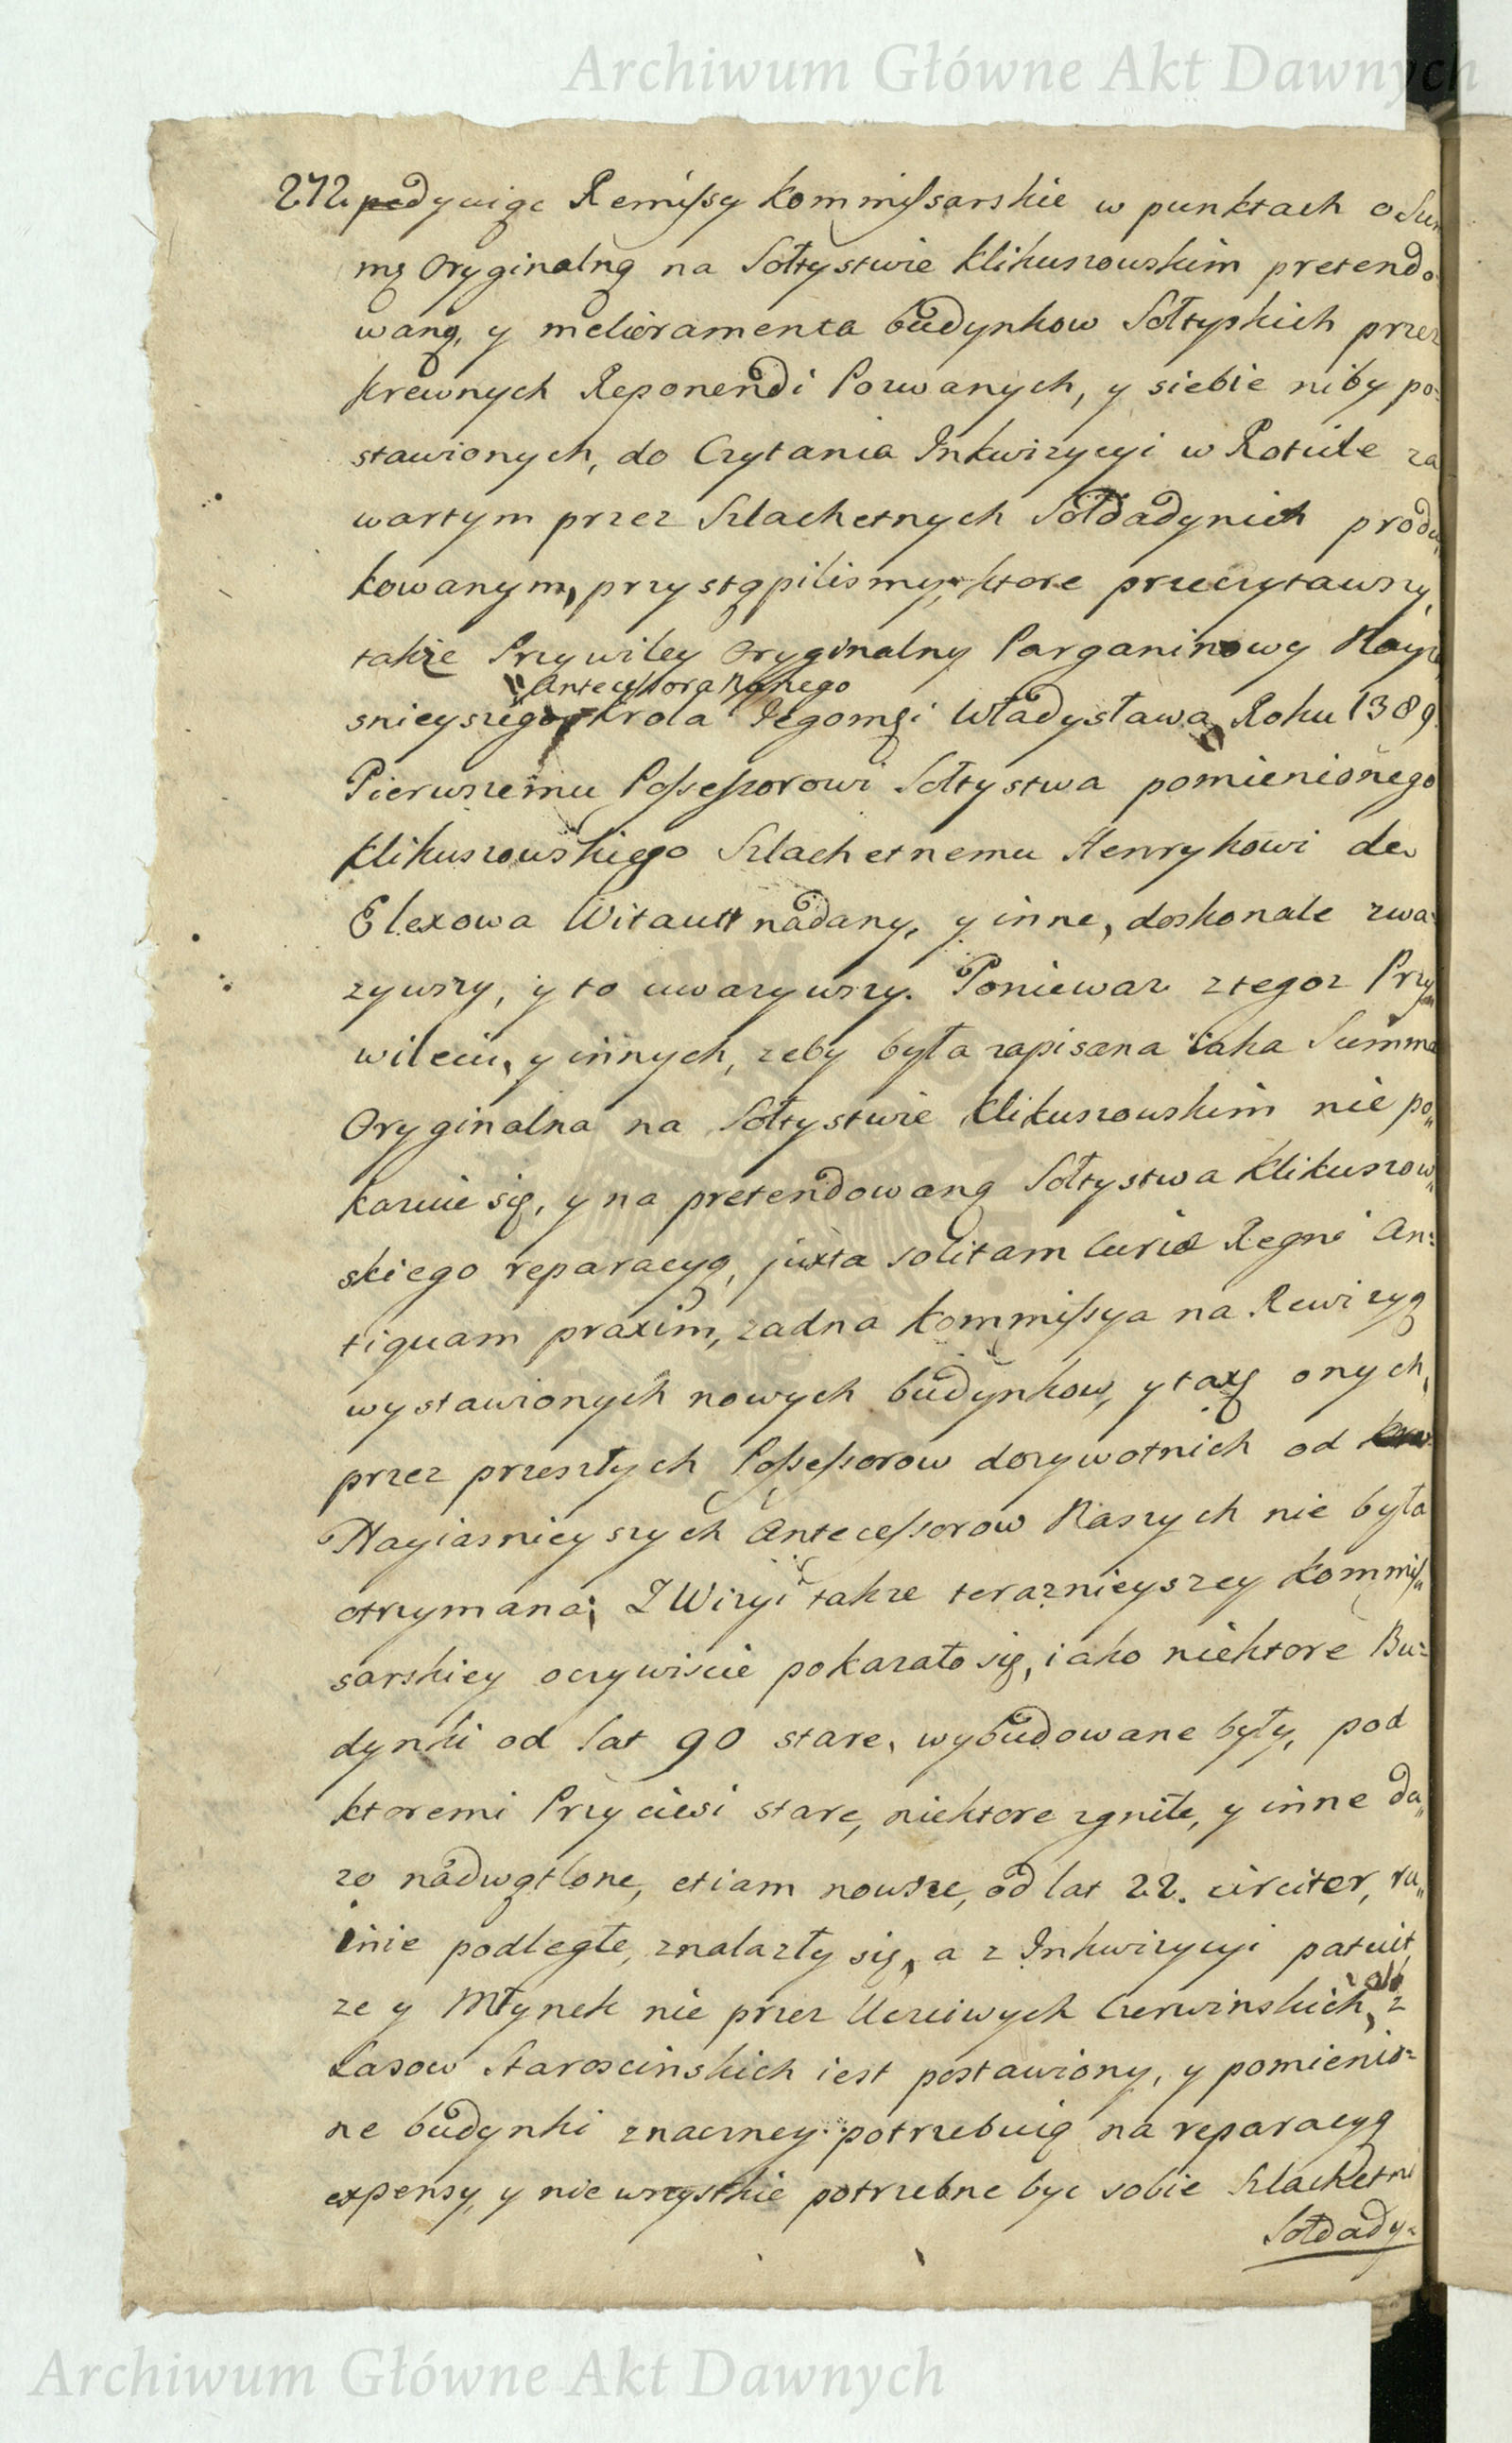 Archiwum Główne Akt Dawnych
272. pedyuiąc Remissy Kommissarskie w punktach o Sum
mę Oryginalną na Sołtystwie Klikuszowskim pretendo-
waną, y melioramenta budynkow Sołtyskich przez
krewnych Reponendi Pozwanych, y siebie niby po-
stawionych, do Czytania Inkwizycyi w Rotule za
wartym przez Szlachetnych Sołdadynich produ
kowanym, przystąpilismy, ktore przeczytawszy,
także Przywiley Oryginalny Parganinowy Nayia
Antecessora Naszego
snieyszego Krola Jegomści Władysława Roku 1389.
Pierwszemu Possessorowi Sołtystwa pomienionego
Klikuszowskiego Szlachetnemu Henrykowi de
Elexowa Witault nadany, y inne, doskonale zwa-
zywszy, y to uwazywszy. Poniewaz z tegoz Przy„
wileiu, y innych, zeby była zapisana iaka Summa
Oryginalna na Sołtystwie Klikuszowskim nie po„
kazuie się, y na pretendowaną Sołtystwa Klikuszow„
skiego reparacyą, juxta solitam Curiæ Regni An:
tiquam praxim, zadna Kommissya na Rewizyą
wystawionych nowych budynkow, y taxę onych,
przez przeszłych Possessorow dozywotnich od
Nayiasnieyszych Antecessorow Naszych nie była
otrzymana; Z Wizyi także teraznieyszey Kommis„
sarskiey oczywiscie pokazało się, iako niektore Bu=
dynki od lat 90 stare, wybudowane były, pod
ktoremi Przyciesi stare, niektore zgniłe, y inne du„
zo nadwątlone, etiam nowsze, od lat 22. circiter, ru„
inie podległe, znalazły się, a z Inkwizycyi patuit,
ze y Młynek nie przez Uczciwych Czerwinskich, ale z
Lasow Staroscinskich iest postawiony, y pomienio=
ne budynki znaczney potrzebuią na reparacyą
expensy, y nie wszystkie potrzebne byc sobie Szlachetni
Sołdady=
Archiwum Główne Akt Dawnych